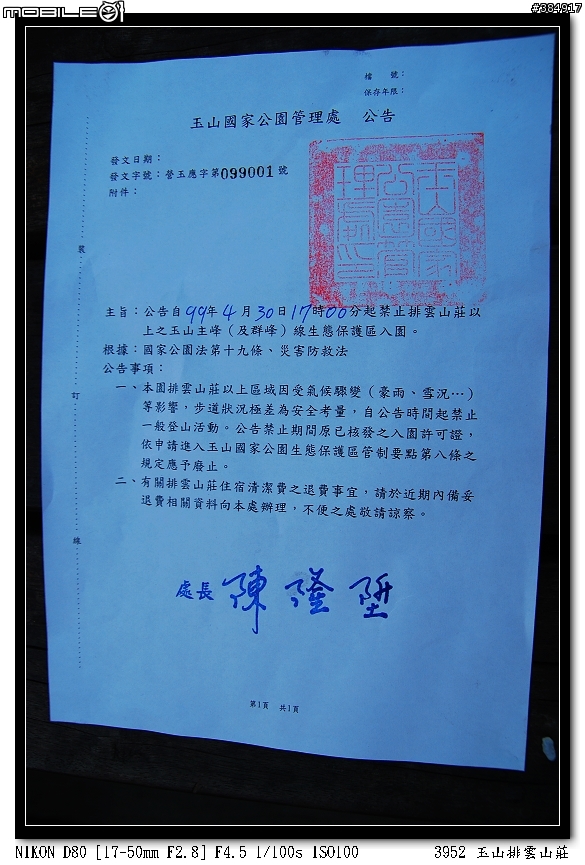 MOBILE01
#384917
檔　號：
保存年限：
玉山國家公園管理處　公告
發文日期：
發文字號：營玉應字第099001號
附件：
玉山國家公園管理處印
裝
主旨：公告自99年4月30日17時00分起禁止排雲山莊以
上之玉山主峰（及群峰）線生態保護區入園。
根據：國家公園法第十九條、災害防救法
公告事項：
一、本園排雲山莊以上區域因受氣候驟變（豪雨、雪況…）
訂
等影響，步道狀況極差為安全考量，自公告時間起禁止
一般登山活動。公告禁止期間原已核發之入園許可證，
依申請進入玉山國家公園生態保護區管制要點第八條之
規定應予廢止。
二、有關排雲山莊住宿清潔費之退費事宜，請於近期內備妥
退費相關資料向本處辦理，不便之處敬請諒察。
線
處長 陳隆陞
第1頁　共1頁
NIKON D80 [17-50mm F2.8] F4.5 1/100s ISO100
3952 玉山排雲山莊